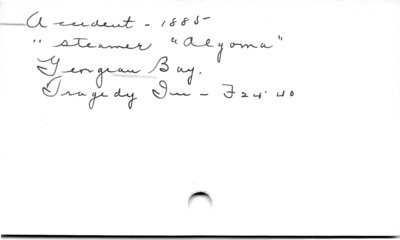 Accident - 1885
" steamer "Algoma"
Georgian Bay.
Tragedy In - F24.40